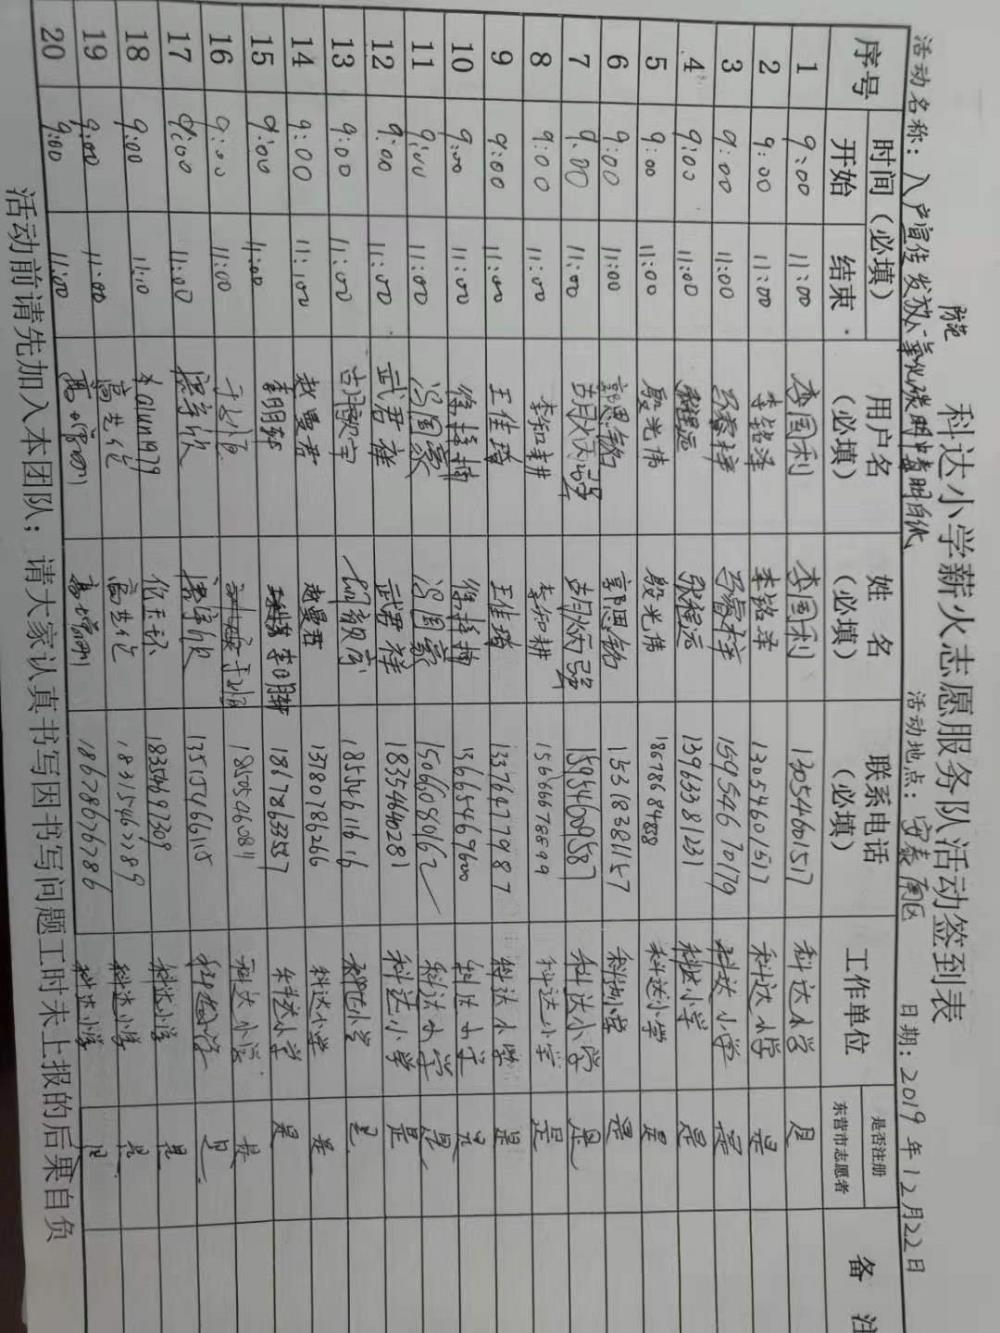 科达小学薪火志愿服务队活动签到表
活动名称：入户宣传发放防范一氧化碳中毒明白纸 活动地点：安泰南区 日期：2019年12月22日
序号 时间（必填） 用户名（必填） 姓名（必填） 联系电话（必填） 工作单位 是否注册东营市志愿者 备注
开始 结束
1 9:00 11:00 李国利 李国利 130546001517 科达小学 是
2 9:00 11:00 李铭泽 李铭泽 13054601517 科达小学 是
3 9:00 11:00 15954670179 科达小学 是
4 9:00 11:00 程远 程远 13963381231 科达小学 是
5 9:00 11:00 殷光伟 殷光伟 18678684888 科达小学 是
6 9:00 11:00 郭思铭 郭思铭 15318381157 科达小学 是
7 9:00 11:00 胡炳强 15954600958 科达小学 是
8 9:00 11:00 李知耕 李知耕 15666678899 科达小学 是
9 9:00 11:00 王佳琦 王佳琦 13376477987 科达小学 是
10 9:00 11:00 徐梓楠 徐梓楠 13665469600 科达小学 是
11 9:00 11:00 冯国豪 冯国豪 15066080162 科达小学 是
12 9:00 11:00 武君祥 武君祥 18354640281 科达小学 是
13 9:00 11:00 18554611616 科达小学 是
14 9:00 11:00 赵曼君 赵曼君 1378078266 科达小学 是
15 9:00 11:00 李明轩 李明轩 18678635557 科达小学 是
16 9:00 11:00 18555460811 科达小学 是
17 9:00 11:00 13515466115 科达小学 是
18 9:00 11:10 18354697309 科达小学 是
19 9:00 11:00 高 高 18315467789 科达小学 是
20 9:00 11:00 高 高 18678676786 科达小学
活动前请先加入本团队；请大家认真书写因书写问题工时未上报的后果自负